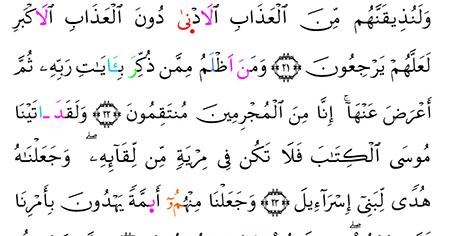 وَلَنُذِيقَنَّهُم مِّنَ ٱلْعَذَابِ ٱلَادْنۭىٰ دُونَ ٱلْعَذَابِ ٱلَاكْبَرِ
لَعَلَّهُمْ يَرْجِعُونَ ﴿٢١﴾ وَمَنَ اَظْلَمُ مِمَّن ذُكِّرَ بِـَٔايَٰتِ رَبِّهِۦ ثُمَّ
أَعْرَضَ عَنْهَآ إِنَّا مِنَ ٱلْمُجْرِمِينَ مُنتَقِمُونَ ﴿٢٢﴾ وَلَقَدَ ـاتَيْنَا
مُوسَى ٱلْكِتَٰبَ فَلَا تَكُن فِى مِرْيَةٍ مِّن لِّقَآئِهِۦۖ وَجَعَلْنَٰهُ
هُدًى لِّبَنِىٓ إِسْرَآءِيلَ ﴿٢٣﴾ وَجَعَلْنَا مِنْهُمُۥٓ أَئِمَّةً يَهْدُونَ بِأَمْرِنَا